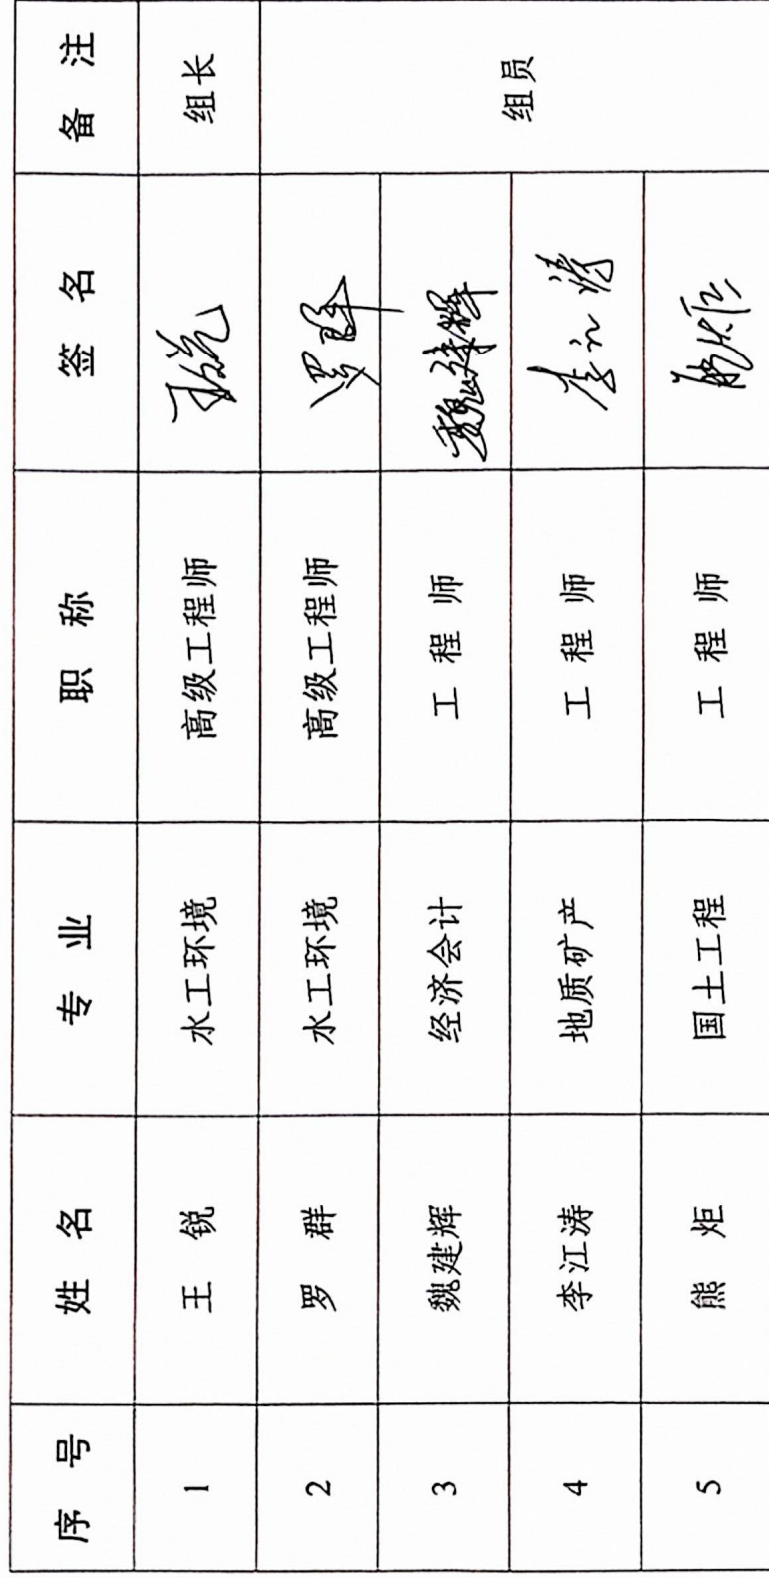 序 号 姓 名 专 业 职 称 签 名 备 注
1 王 锐 水工环境 高级工程师 王锐 组长
2 罗 群 水工环境 高级工程师 罗群 组员
3 魏建辉 经济会计 工 程 师 魏建辉
4 李江涛 地质矿产 工 程 师 李江涛
5 熊 炬 国土工程 工 程 师 熊炬